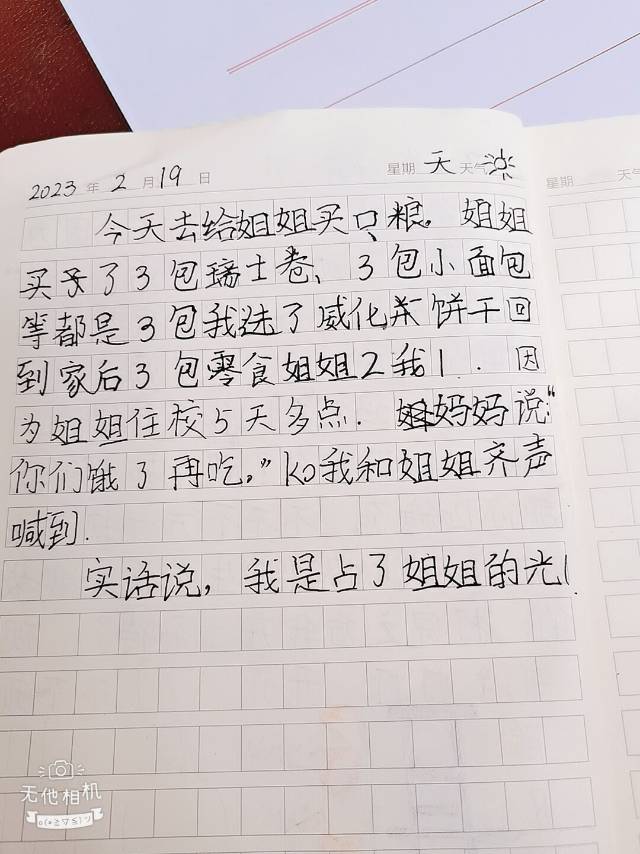 2023 年 2 月 19 日 星期 天 天气
星期 天气
今天去给姐姐买口粮。姐姐
买了3包瑞士卷、3包小面包
等都是3包我选了威化饼干回
到家后3包零食姐姐2我1.因
为姐姐住校5天多点.妈妈说:“
你们饿了再吃。”ko我和姐姐齐声
喊到.
实话说，我是占了姐姐的光!
无他相机